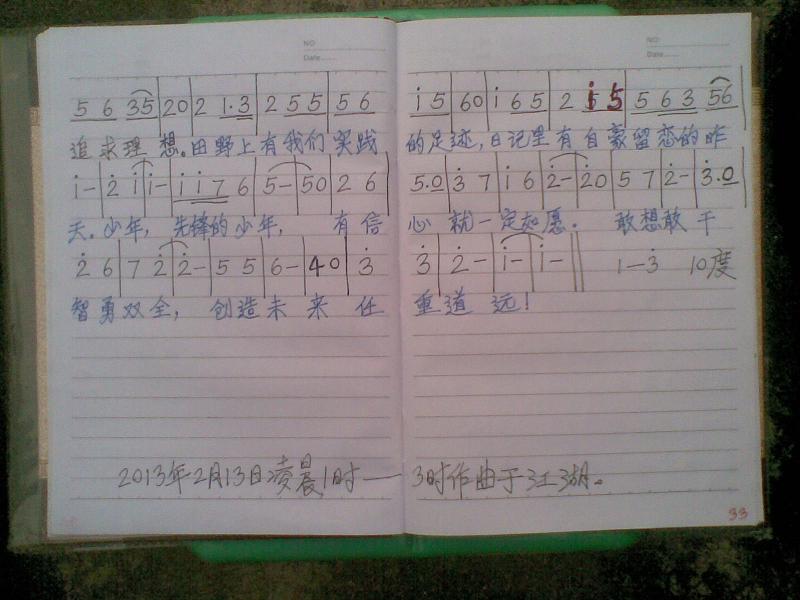 NO
Date
NO
Date
5 6 35|20|2 1·3|2 55|56|i 5|60|i 65|2 i5 5|5 6 3 56|
追求理想。田野上有我们实践的足迹,日记里有自豪留恋的昨
i-|2 i|i-|i i 7 6|5-|50|2 6|5.0|3 7|i 6|2-|20|5 7|2-|3.0|
天。少年,先锋的少年, 有信心就一定如愿。 敢想敢干
2 6|7 2|2-|5 5|6-|40|3|3|2-|i-|i-‖ 1—3 10度
智勇双全, 创造未来任重道远!
2013年2月13日凌晨1时——3时作曲于江湖。
33